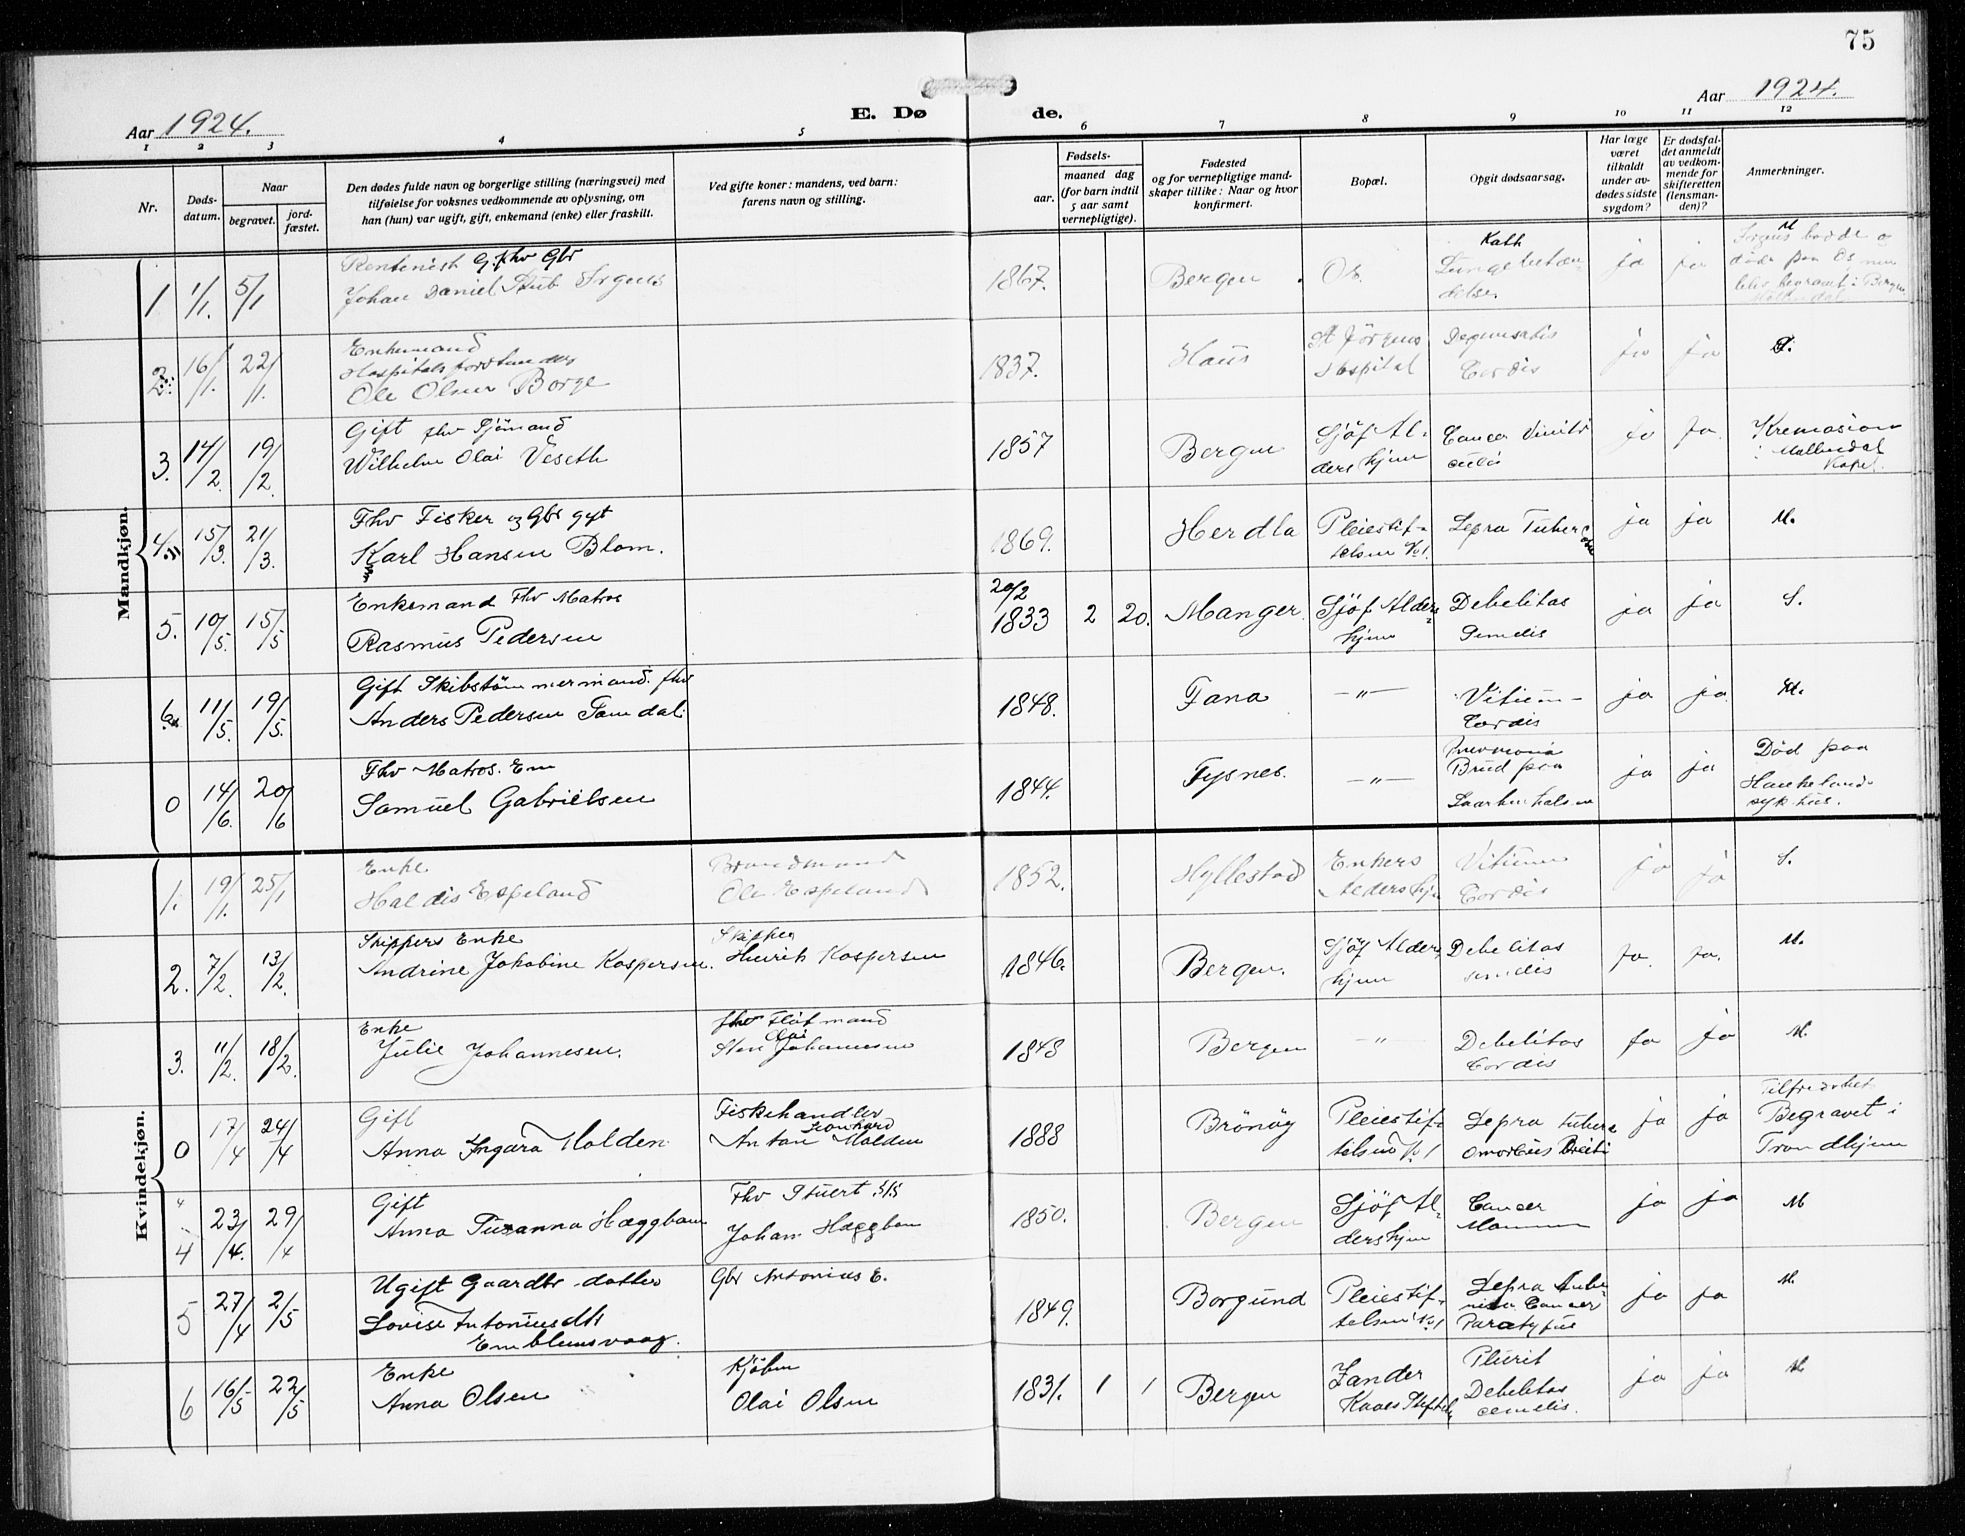 75
Aar 1924.
E. Døde.
Aar 1924.
1 2 3 4 5 6 7 8 9 10 11 12
Nr.
Døds-
datum.
Naar
begravet.
jord-
fæstet.
Den dødes fulde navn og borgerlige stilling (næringsvei) med
tilføielse for voksnes vedkommende av oplysning, om
han (hun) var ugift, gift, enkemand (enke) eller fraskilt.
Ved gifte koner: mandens, ved barn:
farens navn og stilling.
Fødsels-
aar.
maaned dag
(for barn indtil
5 aar samt
vernepligtige).
Fødested
og for vernepligtige mand-
skaper tillike: Naar og hvor
konfirmert.
Bopæl.
Opgit dødsaarsag.
Har læge
været
tilkaldt
under av-
dødes sidste
sygdom?
Er dødsfal-
det anmeldt
av vedkom-
mende for
skifteretten
(lensman-
den)?
Anmerkninger.
Mandkjøn.
1 1/1. 5/1 Rentenist G. fhv Gbr
Johan Daniel Stub Irgens 1867. Bergen Os. Kath
Lungebetæn-
delse. ja ja M
Irgens bodde og
døde paa Os men
blev begravet i Bergen
2 16/1. 22/1. Enkemand
Hospitalsforstander
Ole Olsen Borge 1837. Haus St Jörgens
Hospital Cordis ja ja S.
3. 14/2. 19/2. Gift fhv Sjömand
Wilhelm Olai Veseth 1857 Bergen Sjöf Al-
dershjem Cancer ja ja. Kremasion
i Møllendal
Kapel.
4 15/3. 21/3. Fhv Fisker og Gbr gift
Karl Hansen Blom. 1869. Herdla Pleiestif-
telsen No 1. Lepra Tuberosa ja ja M.
5. 10/5. 15/5 Enkemand Fhv Matros
Rasmus Pedersen 20/2
1833 2 20. Manger. Sjöf Alders-
hjem Debelitas
Senilis ja ja S.
6 11/5. 19/5. Gift Skibstömmermand. fhv
Anders Pedersen Tamdal. 1848. Fana —"— Vitium
Cordis ja ja M.
0 14/6. 20/6 Fhv Matros. Em
Samuel Gabrielsen 1844. Tysnes. —"— Pneumonia
Brud paa
Laarbenhalsen ja ja Død paa
Haukeland
sykhus.
Kvindekjøn.
1. 19/1. 25/1 Enke
Haldis Espeland Brandmand
Ole Espeland 1852. Hyllestad Enkers
Aldershjem Vitium
Cordis ja ja S.
2. 7/2. 13/2. Skippers Enke
Andrine Jakobine Kaspersen. Skipper
Hinrik Kaspersen 1846. Bergen. Sjöf Alders
hjem Debelitas
senilis ja. ja. M.
3. 11/2. 18/2. Enke
Julie Johannesen. fhv Flötmand
Olai
Sten Johannesen 1848 Bergen —"— Debelitas
Cordis ja ja M.
0 17/4 24/4 Gift
Anna Ingara Molden Fiskehandler
Leonhard
Anton Molden 1888 Brönöy Pleiestif-
telsen No 1 Lepra tubero ja ja Tilfredshet
Begravet i
Trondhjem
4 23/4. 29/4 Gift
Anna Susanna Hæggbom Fhv Stuert
Johan Hæggbom 1850. Bergen Sjöf Al-
dershjem Cancer
Mamma ja ja M
5 27/4 2/5 Ugift Gaardbr-datter
Lovise Antoniusdtr
Emblemsvaag. Gbr Antonius E. 1849. Borgund Pleiestif-
telsen No 1 Lepra
Cancer ja ja M.
6 16/5 22/5 Enke
Anna Olsen Kjöbm
Olai Olsen 1831. 1 1 Bergen Zander
Kaaes Stiftelse Plurit
Debelitas
senilis. ja ja M.